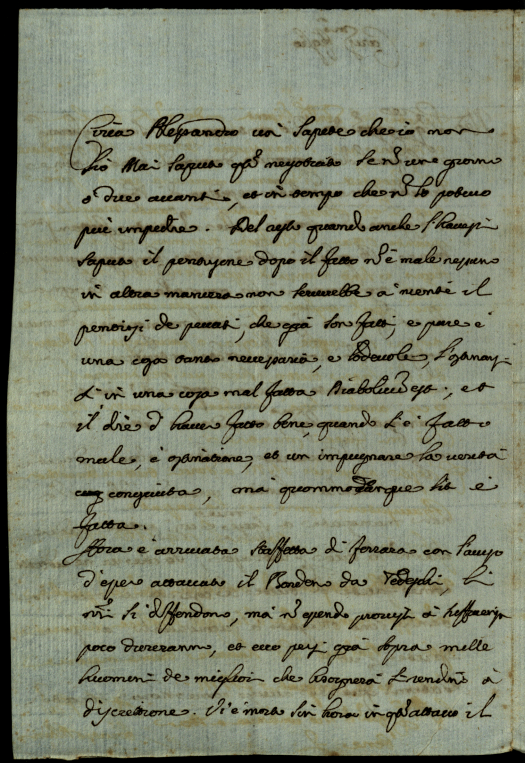 Circa Alessandro voi sapete che io non
l'hò mai saputo q.to negotiato se nõ un giorno
ò due avanti, et in tempo che nõ lo potevo
più impedire. Del resto quando anche l'havessi
saputo il pentirsene dopo il fatto nõ è male nessuno
in altra maniera non servirebbe à niente il
pentirsi de peccati, che già son fatti, e pure è
una cosa tanto necessaria, e lodevole, l'ostinarsi
di in una cosa mal fatta Diabolicum est, et
il dire d'haver fatto bene, quando s'è fatto
male, è ostinatione, et un impugnare la verità
conosciuta, mà quommodocunque sit è
fatta.
Hora è arrivata staffetta di Ferrara con l'aviso
d'esser attaccato il Bonden da Tedeschi, li
nri si difendono, mà nõ essendo provisti à
poco dureranno, et ecco persi già sopra mille
huomini de migliori che bisognerà si rendino à
discretione. Vi è morto sin hora in q.to attacco il